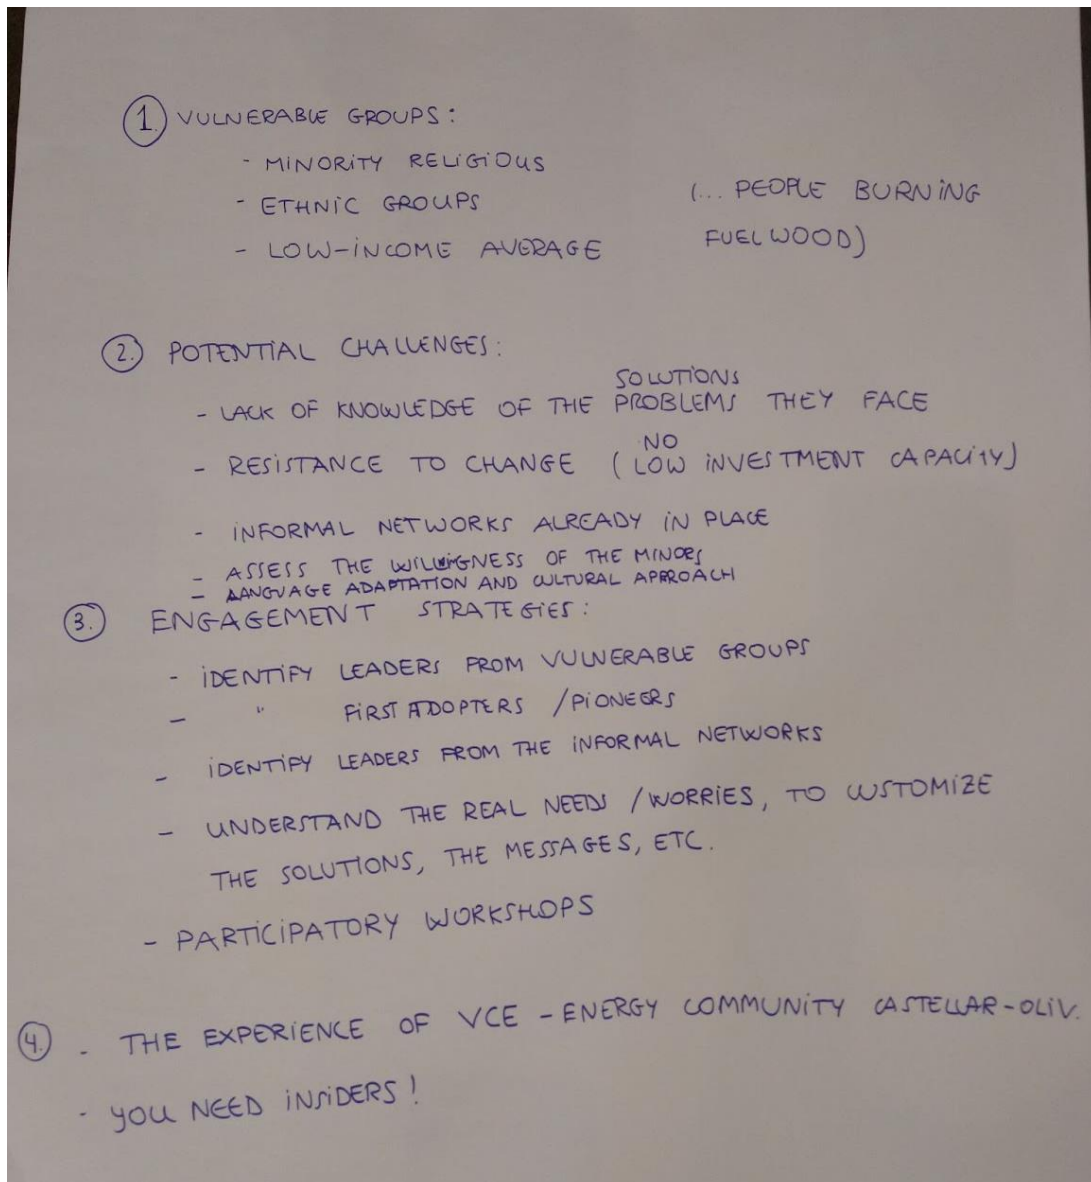 1. VULNERABLE GROUPS:
- MINORITY RELIGIOUS
- ETHNIC GROUPS
- LOW-INCOME AVERAGE
(... PEOPLE BURNING
FUELWOOD)
2. POTENTIAL CHALLENGES:
SOLUTIONS
- LACK OF KNOWLEDGE OF THE PROBLEMS THEY FACE
NO
- RESISTANCE TO CHANGE (LOW INVESTMENT CAPACITY)
- INFORMAL NETWORKS ALREADY IN PLACE
- ASSESS THE WILLINGNESS OF THE MINORS
- LANGUAGE ADAPTATION AND CULTURAL APPROACH
3. ENGAGEMENT STRATEGIES:
- IDENTIFY LEADERS FROM VULNERABLE GROUPS
- " FIRST ADOPTERS / PIONEERS
- IDENTIFY LEADERS FROM THE INFORMAL NETWORKS
- UNDERSTAND THE REAL NEEDS / WORRIES, TO CUSTOMIZE
THE SOLUTIONS, THE MESSAGES, ETC.
- PARTICIPATORY WORKSHOPS
4. - THE EXPERIENCE OF VCE - ENERGY COMMUNITY CASTELLAR-OLIV.
- YOU NEED INSIDERS!